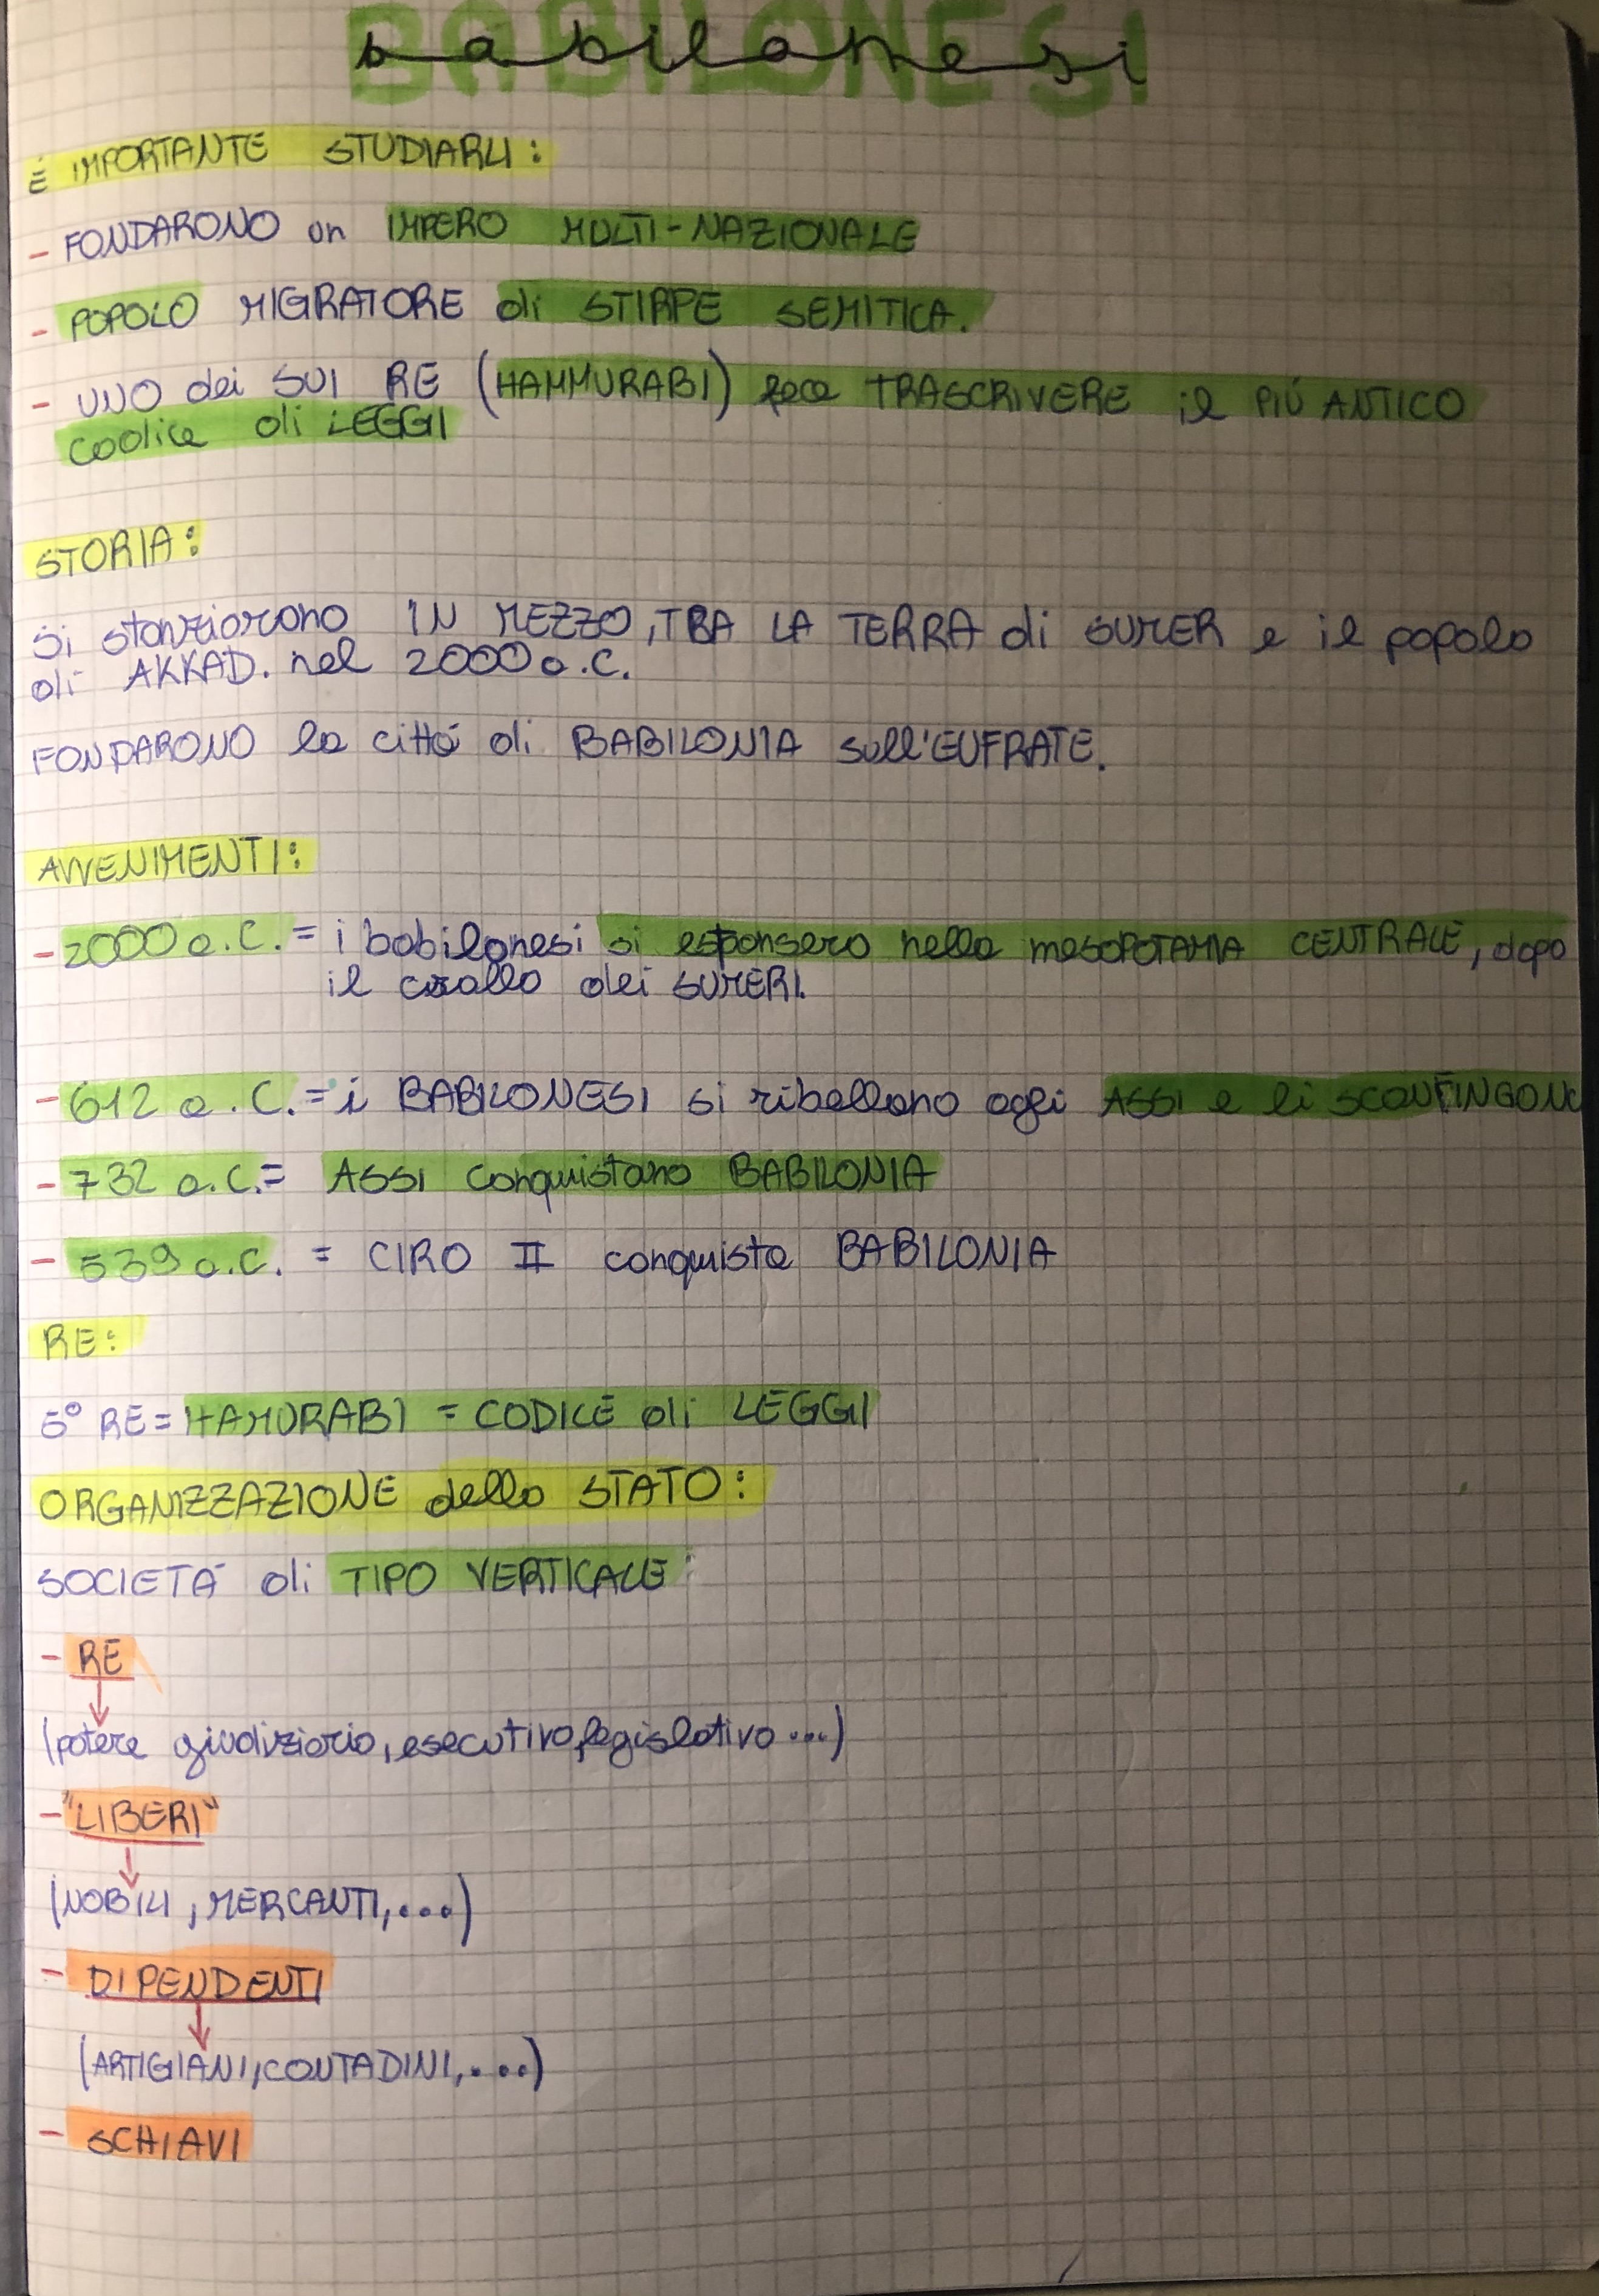 BABILONESI
babilonesi
É IMPORTANTE STUDIARLI:
- FONDARONO un IMPERO MULTI-NAZIONALE
- POPOLO MIGRATORE di STIRPE SEMITICA.
- UNO dei SUI RE (HAMMURABI) fece TRASCRIVERE il PIÚ ANTICO
codice di LEGGI
STORIA:
Si stanziarono IN MEZZO, TRA LA TERRA di SUMER e il popolo
di AKKAD. nel 2000 a.C.
FONDARONO la cittá di BABILONIA sull'EUFRATE.
AVVENIMENTI:
- 2000 a.C. = i babilonesi si espansero nella mesoPOTAMIA CENTRALE, dopo
il crollo dei SUMERI.
- 612 a.C. = i BABILONESI si ribellano agli ASSI e li SCONFINGONO
- 732 a.C. = ASSI conquistano BABILONIA
- 539 a.C. = CIRO II conquista BABILONIA
RE:
6° RE = HAMURABI = CODICE di LEGGI
ORGANIZZAZIONE dello STATO:
SOCIETÁ di TIPO VERTICALE:
- RE
(potere giudiziario, esecutivo, legislativo ...)
- "LIBERI"
(NOBILI, MERCANTI, ...)
- DIPENDENTI
(ARTIGIANI, CONTADINI, ....)
- SCHIAVI